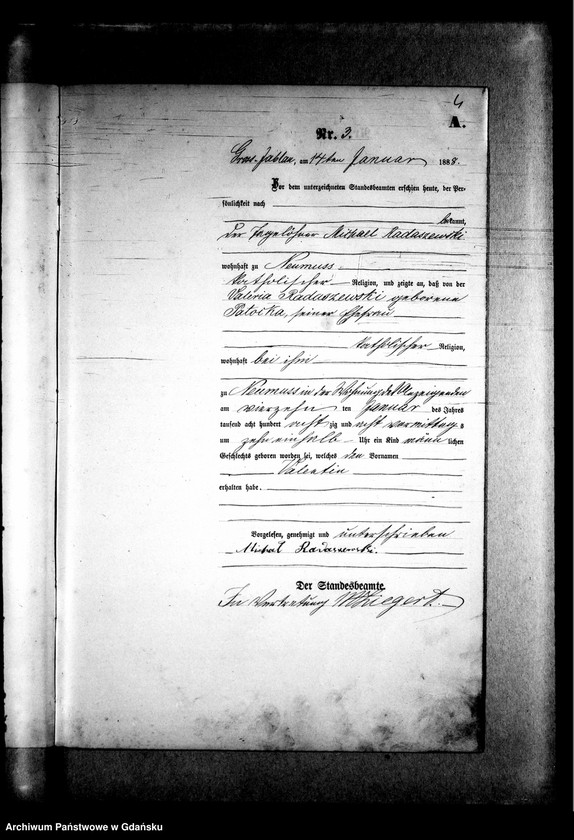 4
A.
Nr. 3.
Gross-Jablau, am 14ten Januar 1888.
Vor dem unterzeichneten Standesbeamten erschien heute, der Per-
sönlichkeit nach
bekannt,
der Tagelöhner Michael Radaszewski
wohnhaft zu Neumuss
katholischer Religion, und zeigte an, daß von der
Valeria Radaszewski geborene
Patocka, seiner Ehefrau
katholischer Religion,
wohnhaft bei ihm
zu Neumuss in der Wohnung des Anzeigenden
am vierzehn ten Januar des Jahres
tausend acht hundert acht zig und acht vormittag s
um zehn einhalb Uhr ein Kind männ lichen
Geschlechts geboren worden sei, welches den Vornamen
Valentin
erhalten habe.
Vorgelesen, genehmigt und unterschrieben
Michał Radaszewski.
Der Standesbeamte.
In Vertretung Wiegert.
Archiwum Państwowe w Gdańsku